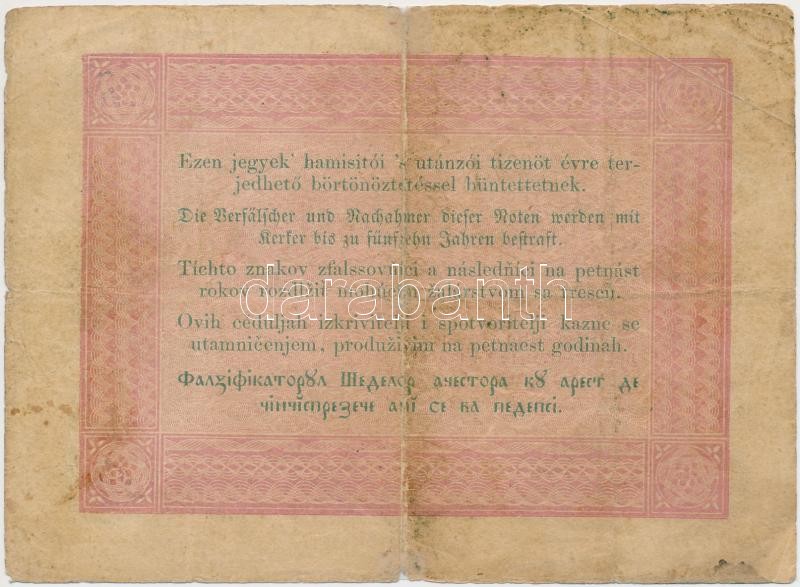 Ezen jegyek' hamisitói 's utánzói tizenöt évre ter-
jedhető börtönöztetéssel büntettetnek.
Die Verfälscher und Nachahmer dieser Noten werden mit
Kerker bis zu fünfzehn Jahren bestraft.
Tíchto znakov zfalssovníci a následníci na petnást
rokov rozdlžit žalárstvom sa tresců.
Ovih ceduljah izkrivitelji i spotvoritelji kazne se
utamničenjem, produživim na petnaest godinah.
Фалѕіфікаторꙋл Шеделор ачестора кꙋ арест де
чінчіспрезече аní се ва педепсі.
darabanth